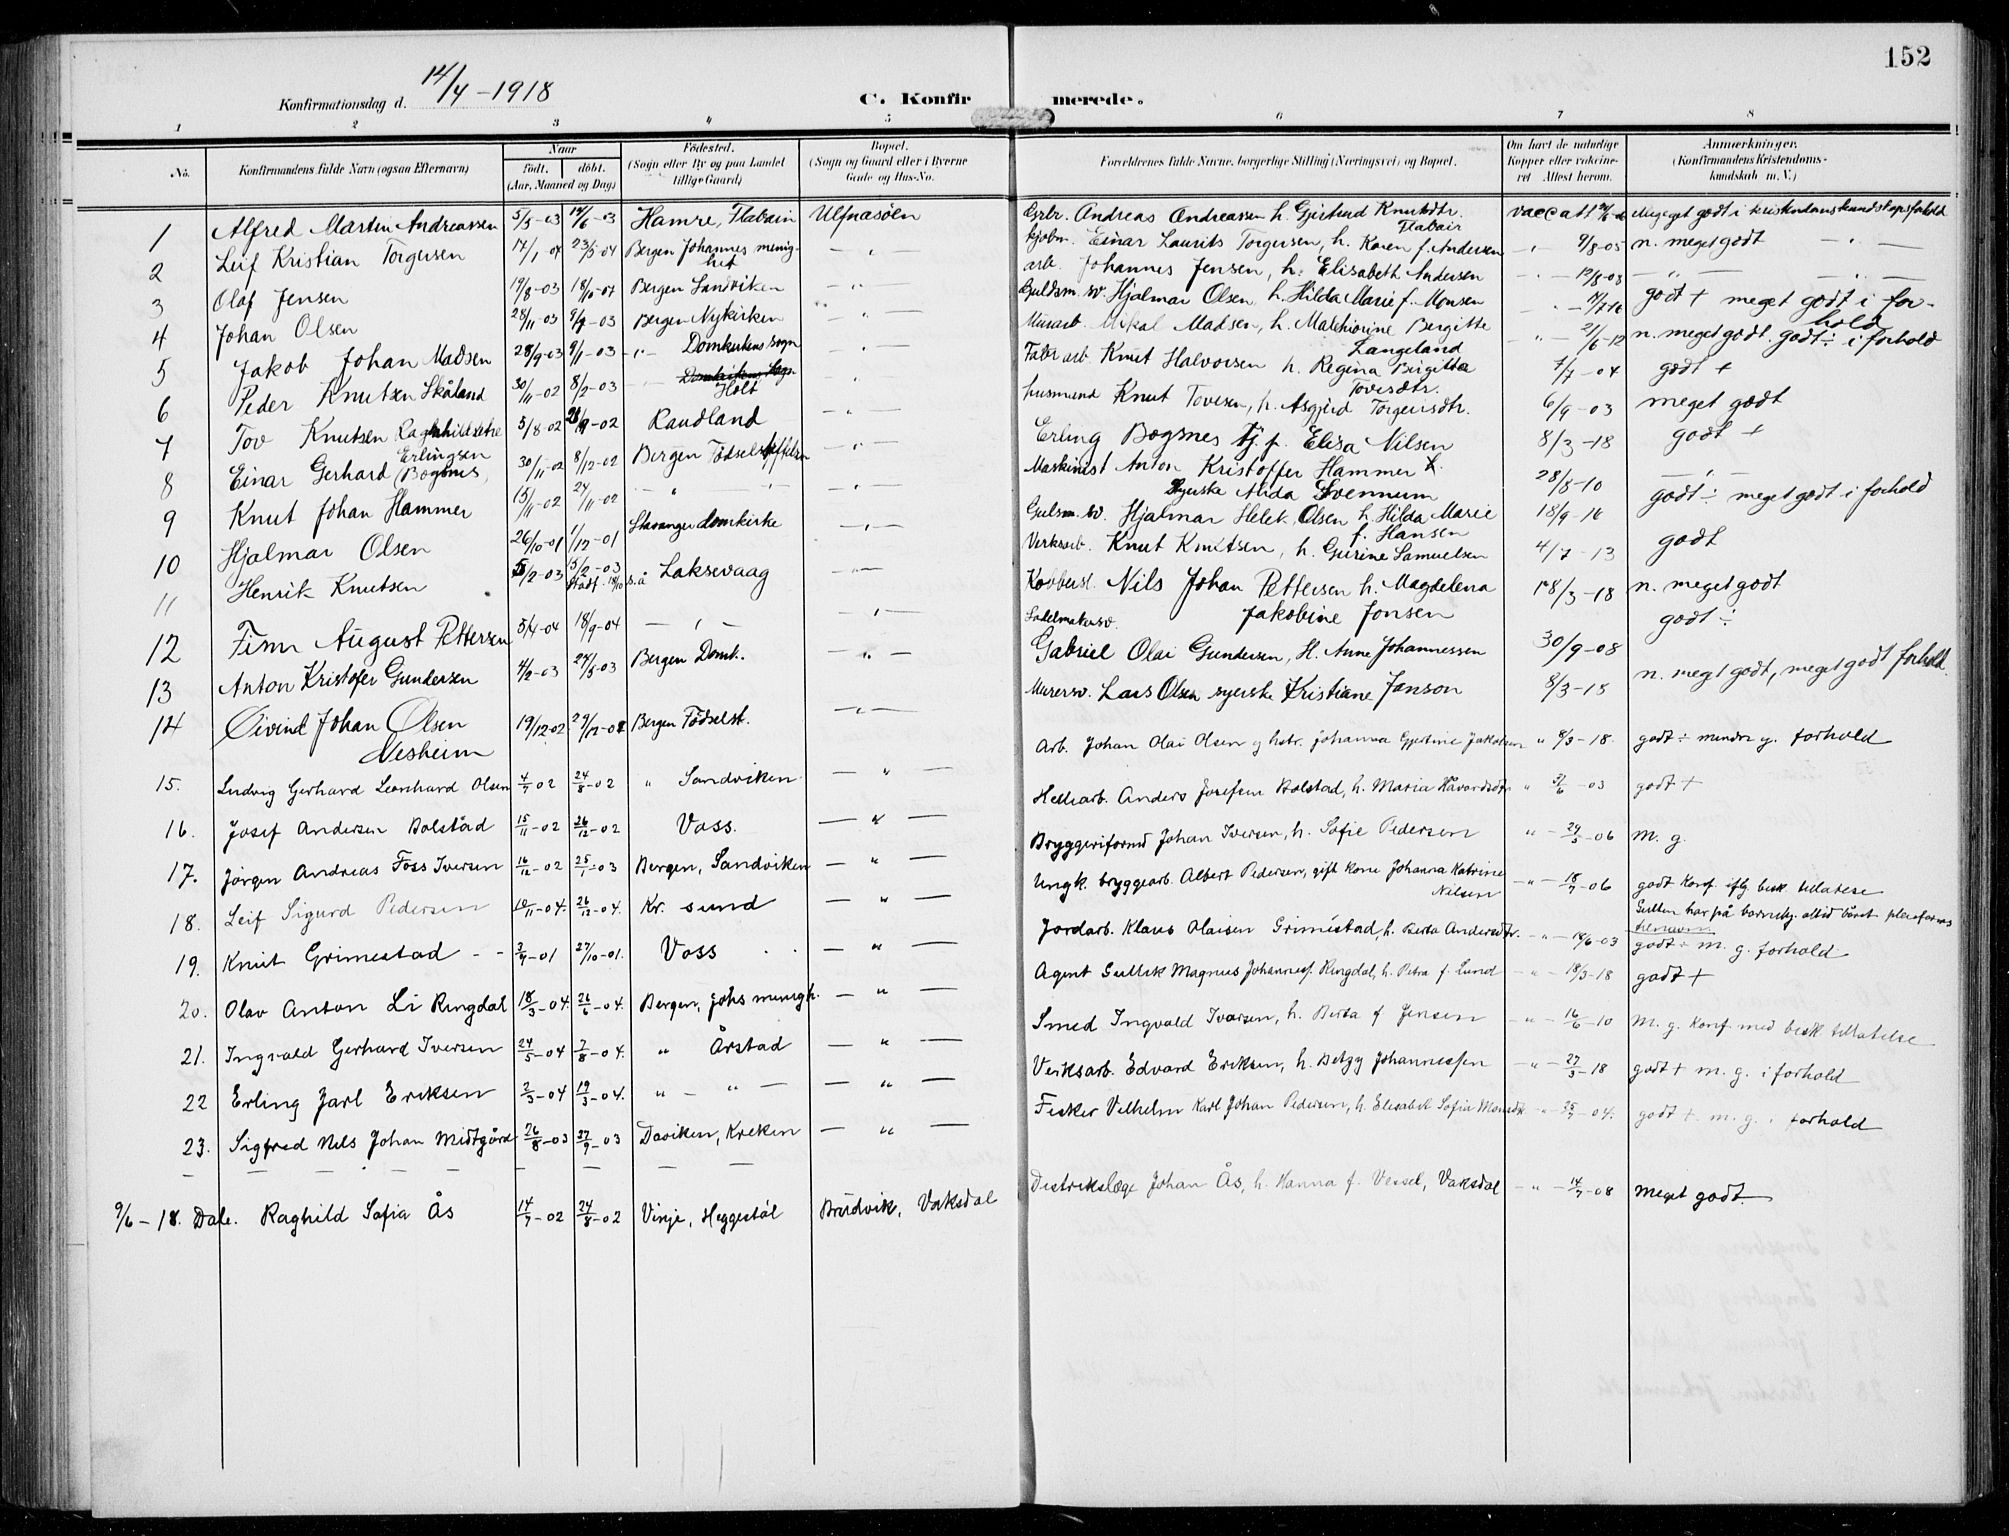 152
Konfirmationsdag d. 14/4 - 1918
C. Konfirmerede.
1 2 3 4 5 6 7 8
No. Konfirmandens fulde Navn (ogsaa Efternavn) Naar født. døbt. (Aar, Maaned og Dag) Fødested. (Sogn eller By og paa Landet tillige Gaard) Bopæl. (Sogn og Gaard eller i Byerne Gade og Hus-No. Forældrenes fulde Navne, borgerlige Stilling (Næringsvei) og Bopæl. Om havt de naturlige Kopper eller vaccineret Attest herom. Anmerkninger. (Konfirmandens Kristendomskundskab m. V.)
1 Alfred Martin Andreassen 5/5-03 14/6-03 Hamre, Flabain Ulfnasöen Grbr. Andreas Andreassen h. Gjertrud Knutsdtr. Flabair vacc att Meget godt i kristendomskundskap forhold
2 Leif Kristian Torgersen 17/1 04 23/5-04 Bergen Johannes menighet - " - Einar Laurits Torgersen, h. Karen f. Andersen - " - 9/8-05 n. meget godt - " -
3 Olaf Jensen 19/8-03 Bergen Sandviken - " - arb. Johannes Jensen, h. Elisabeth Andersen - " - 12/8-03 - " - - " -
4 Johan Olsen 28/11-03 Bergen Nykirken - " - Guldsm. sv. Hjalmar Olsen h. Hilda Marie f. Monsen godt + meget godt i forhold
5 Jakob Johan Madsen 28/9-03 - " - Domkirkens sogn - " - Murarb. Mikal Madsen, h. Malchiorine Bergitte Langeland - " - 21/6-12 n. meget godt. godt ÷ i forhold
6 Peder Knutsen Skåland 30/11-02 8/2-03 Holt - " - Fabr arb Knut Halvorsen h. Regina Birgitta Tovesdtr. 7/7-04 godt +
7 Tov Knutsen Ragnhildsetre 5/8-02 Raudland - " - husmand Knut Tovesen, h. Asgjerd Torgersdtr. 6/9-03 meget godt
8 Einar Gerhard Erlingsen (Bogsnes) 30/11-02 8/12-02 Bergen Fødselsstiftelsen - " - Erling Bogsnes tj. p. Elisa Nilsen 8/3-18 godt +
9 Knut Johan Hammer 15/11-02 24/11-02 - " - - " - Maskinist Anton Kristoffer Hammer Syerske Alida Svennum 28/8-10 - " -
10 Hjalmar Olsen 26/10-01 1/12-01 Stavanger domkirke - " - Gulsm. sv. Hjalmar Selek Olsen h. Hilda Marie f. Hansen 18/9-16 godt ÷ meget godt i forhold
11 Henrik Knutsen 5/2-03 15/2-03 Laksevaag - " - Verksarb. Knut Knutsen, h. Gurine Samuelsen 4/7-13 godt
12 Finn August Pettersen 5/4-04 18/9-04 - " - - " - Kobberst. Nils Johan Pettersen h. Magdelena Jakobine Jonsen 18/3-18 n. meget godt
13 Anton Kristofer Gundersen 4/2-03 24/5-03 Bergen Domk. - " - Sadelmakersv. Gabriel Olai Gundersen, H. Anne Johannessen 30/9-08 godt ÷
14 Øivind Johan Olsen Nesheim 19/12-02 Bergen Fødselst. - " - Murersv. Lars Olsen syerske Kristiane Janson 8/3-18 n. meget godt, meget godt forhold
15. Ludvig Gerhard Leonhard Olsen 4/7 02 24/8-02 " Sandviken - " - Arb. Johan Olai Olsen og hstr. Johanna Gjertine Jakobsen " 8/3-18. godt ÷ mindre g. forhold
16. Josef Andersen Bolstad 15/11-02 26/12-02 Voss. - " - Hellearb. Anders Josefsen Bolstad, h. Maria Håvardsdtr " -03 godt +
17. Jörgen Andreas Foss Iversen 16/12-02 25/1-03 Bergen, Sandviken - " - Bryggeriformd Johan Iversen, h. Sofie Pedersen " - 29/5-06 M. g.
18. Leif Sigurd Pedersen 10/11-04. 26/12-04. Kr. sund - " - Ungk. bryggearb. Albert Pedersen, gift kone Johanna Katrine Nilsen - " - 18/7-06 godt Konf. iflg besk. tillatese
19. Knut Grimestad - - 3/9-01 27/10-01. Voss - " - Jordarb. Klaus Olaisen Grimestad, h. Berta Andersdtr. - " - 14/6-03 godt ÷ m. g. forhold
20. Olav Anton Li Ringdal 18/3-04. 26/6-04. Bergen, Johs menigh. - " - Agent Sullik Magnus Johannesf. Ringdal, h. Petra f. Lund - " - 18/3-18 godt +
21. Ingvald Gerhard Iversen 24/5-04 7/8-04. " Årstad - " - Smed Ingvald Ivarsen, h. Berta f Jensen - " - 16/6-10 M. g. Konf. med besk tillatelse
22 Erling Jarl Eriksen 2/3-04 19/3-04. " - " - - " - Verksarb. Edvard Eriksen, h. Betzy Johannessen - " - 27/3-18 godt + m. g. i forhold
23. Sigfred Nils Johan Midtgård 26/8-03 27/9-03 Daviken, Kreken - " - Fisker Vilhelm Karl Johan Pedersen, h. Elisabet Sofia Monsdtr - " - 25/7-04. godt + m. g. i forhold
9/6-18. Dale. Raghild Sofia Ås 14/7-02 24/8-02 Vinje, Heggestøl Bruvik, Vaksdal Distrikslæge Johan Ås, h. Hanna f. Vessel, Vaksdal - " - 14/7-08 Meget godt.